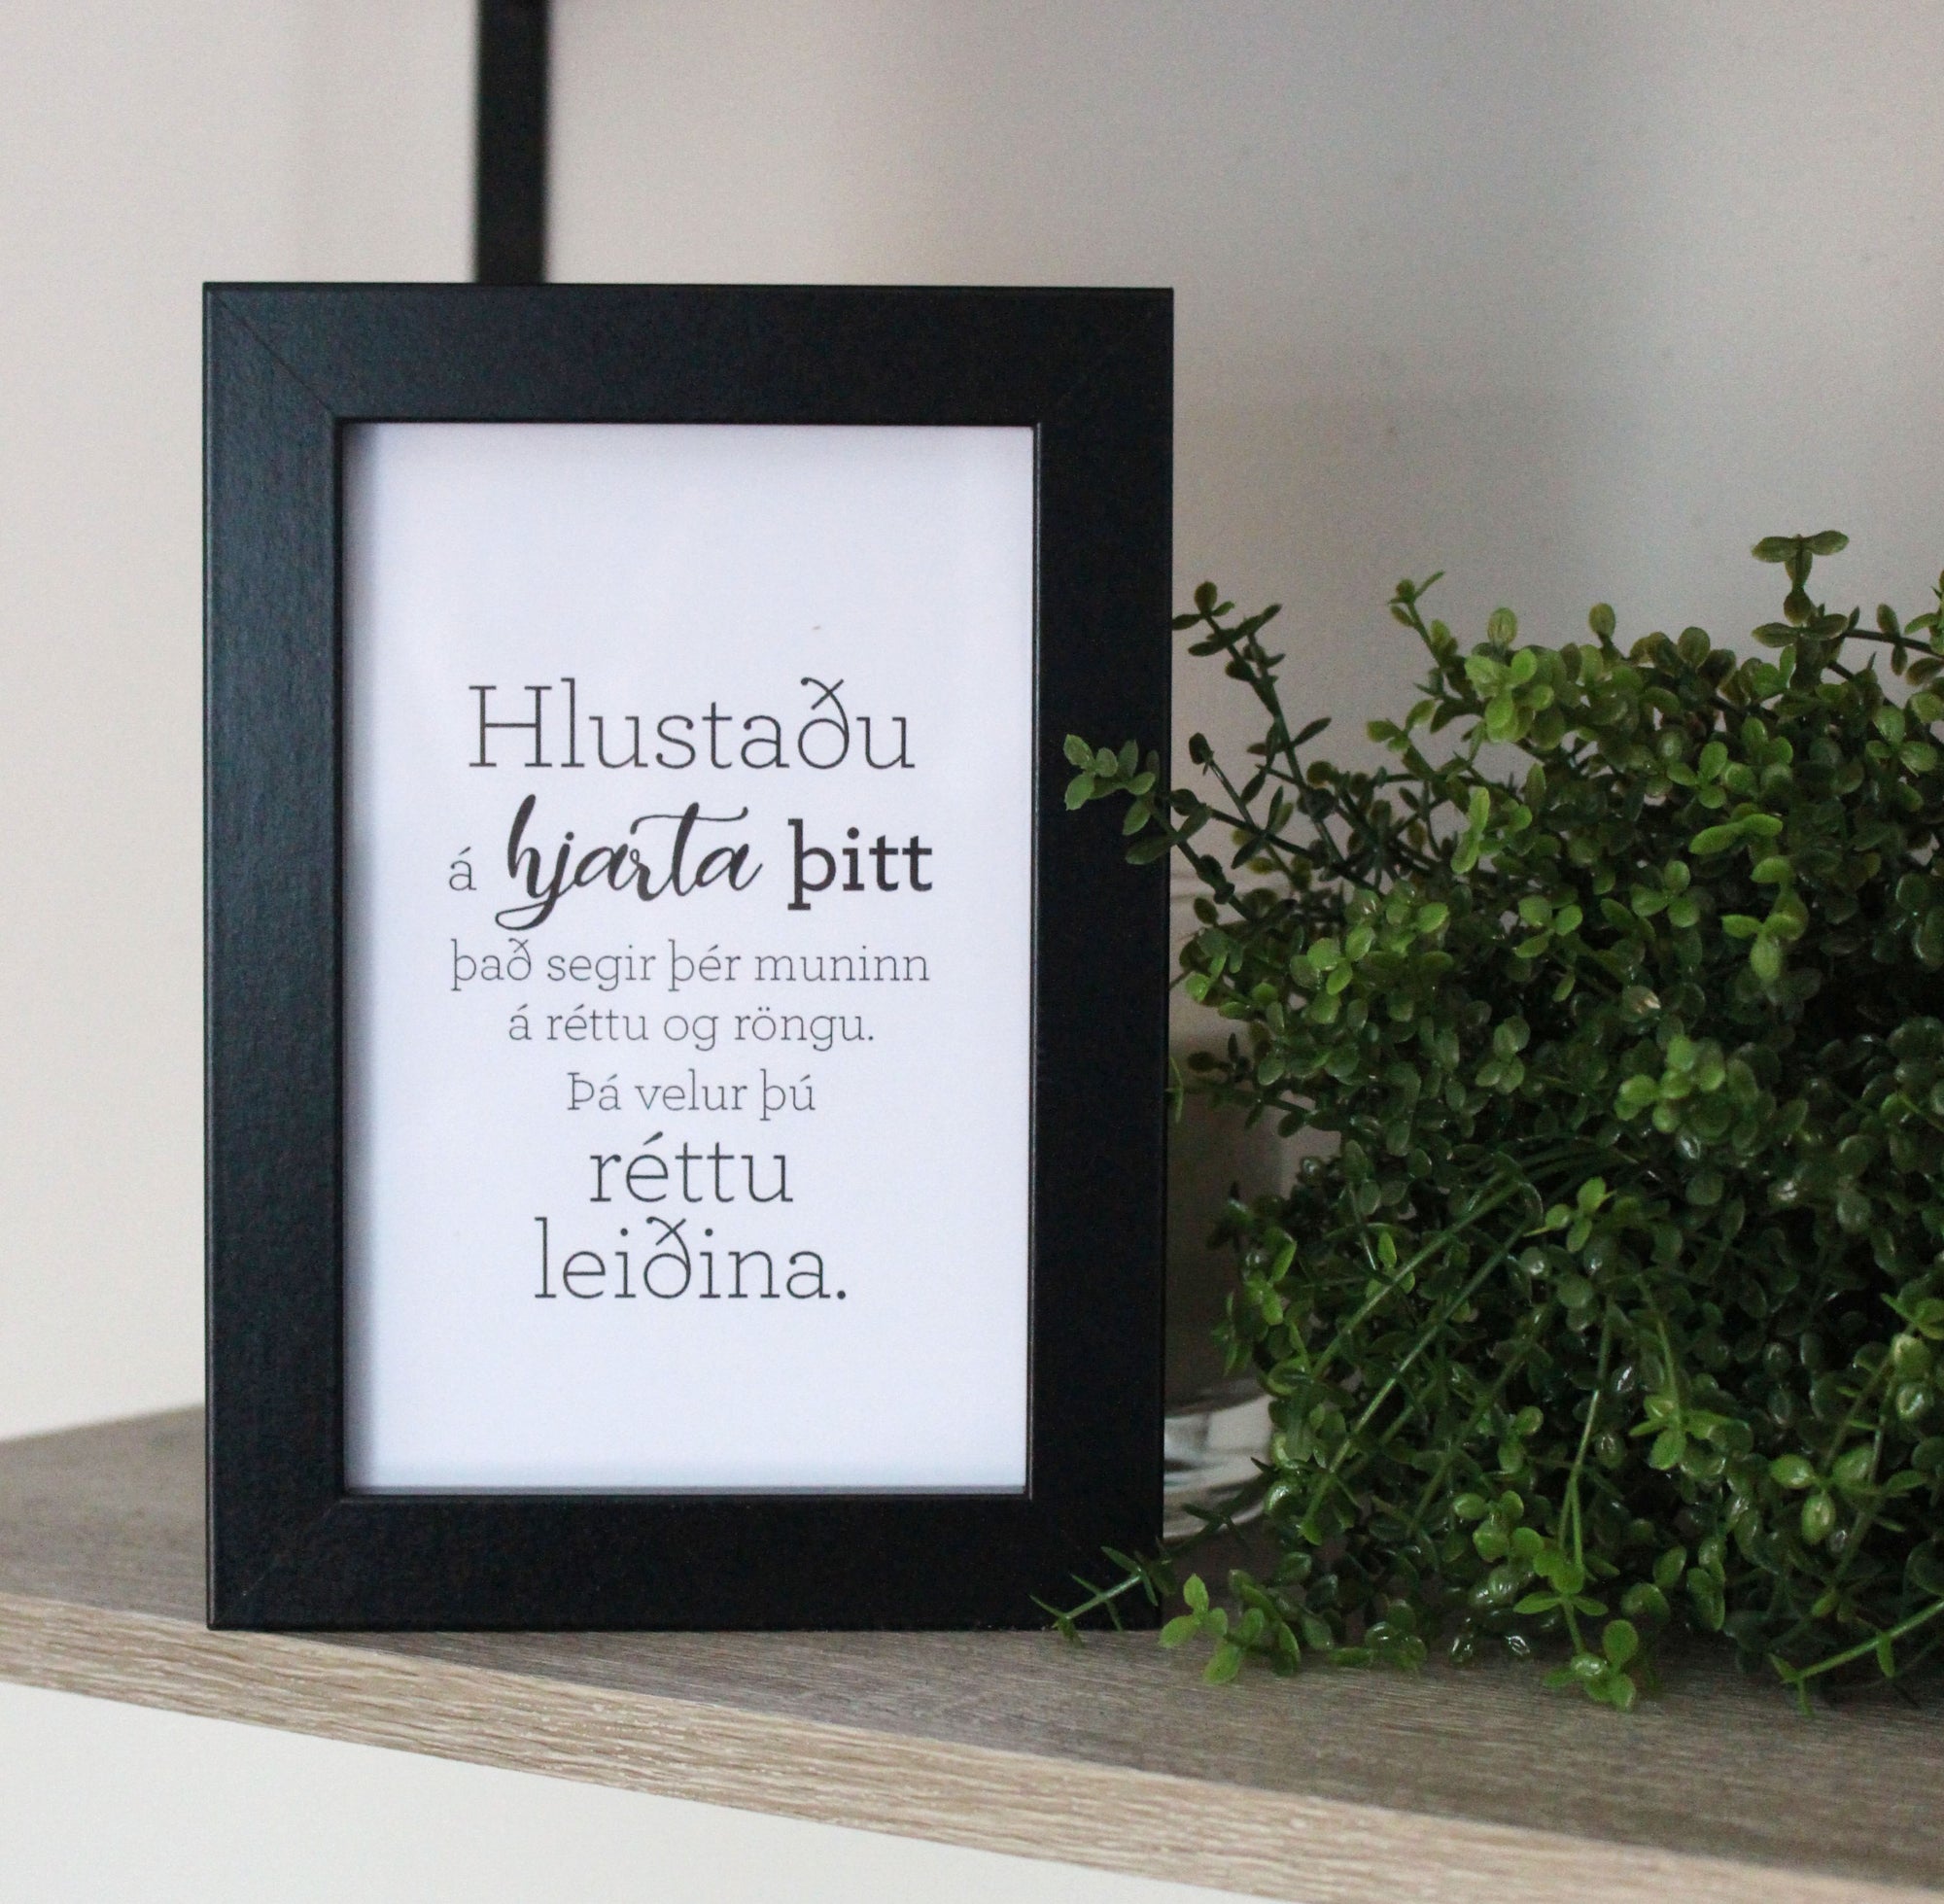 Hlustaðu
á hjarta þitt
það segir þér muninn
á réttu og röngu.
Þá velur þú
réttu
leiðina.